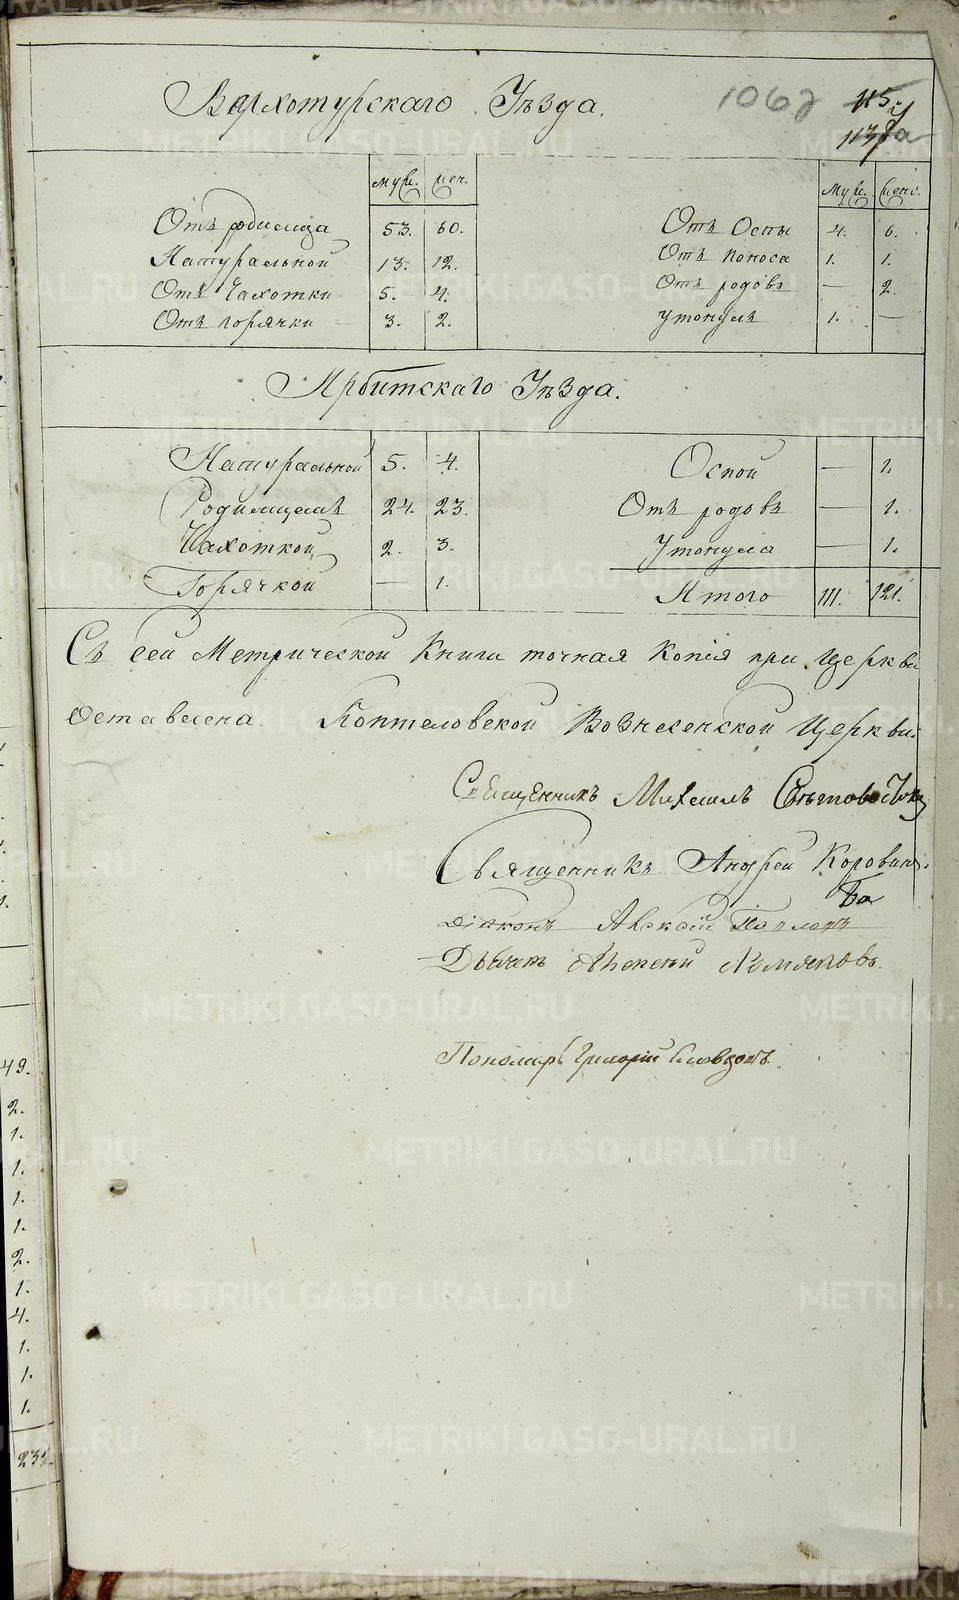 Верхотурскаго Уѣзда.
1062
115
муж. жен. муж. жен.
Отъ родимца 53. 60. Отъ Оспы 4. 6.
Натуральной 13. 12. Отъ поноса 1. 1.
Отъ Чахотки 5. 4. Отъ родовъ — 2.
Отъ горячки 3. 2. утонулъ 1. —
Ирбитскаго Уѣзда.
Натуральной 5. 4. Оспой — 1.
Родимцемъ 24. 23. Отъ родовъ — 1.
Чахоткой 2. 3. Утонула — 1.
Горячкой — 1. Итого 111. 121.
Съ сей Метрической Книги точная Копія при Церкви
Оставлена. Коптеловской Вознесенской Церкви:
Священникъ Михаилъ
Священникъ Андрей Коровинъ.
Діаконъ Алексій
Дьячекъ Алексѣй Хомяковъ.
Пономарь Григорій Словцовъ.
49.
2.
1.
1.
1.
1.
2.
1.
4.
1.
1.
1.
232.
METRIKI.GASO-URAL.RU